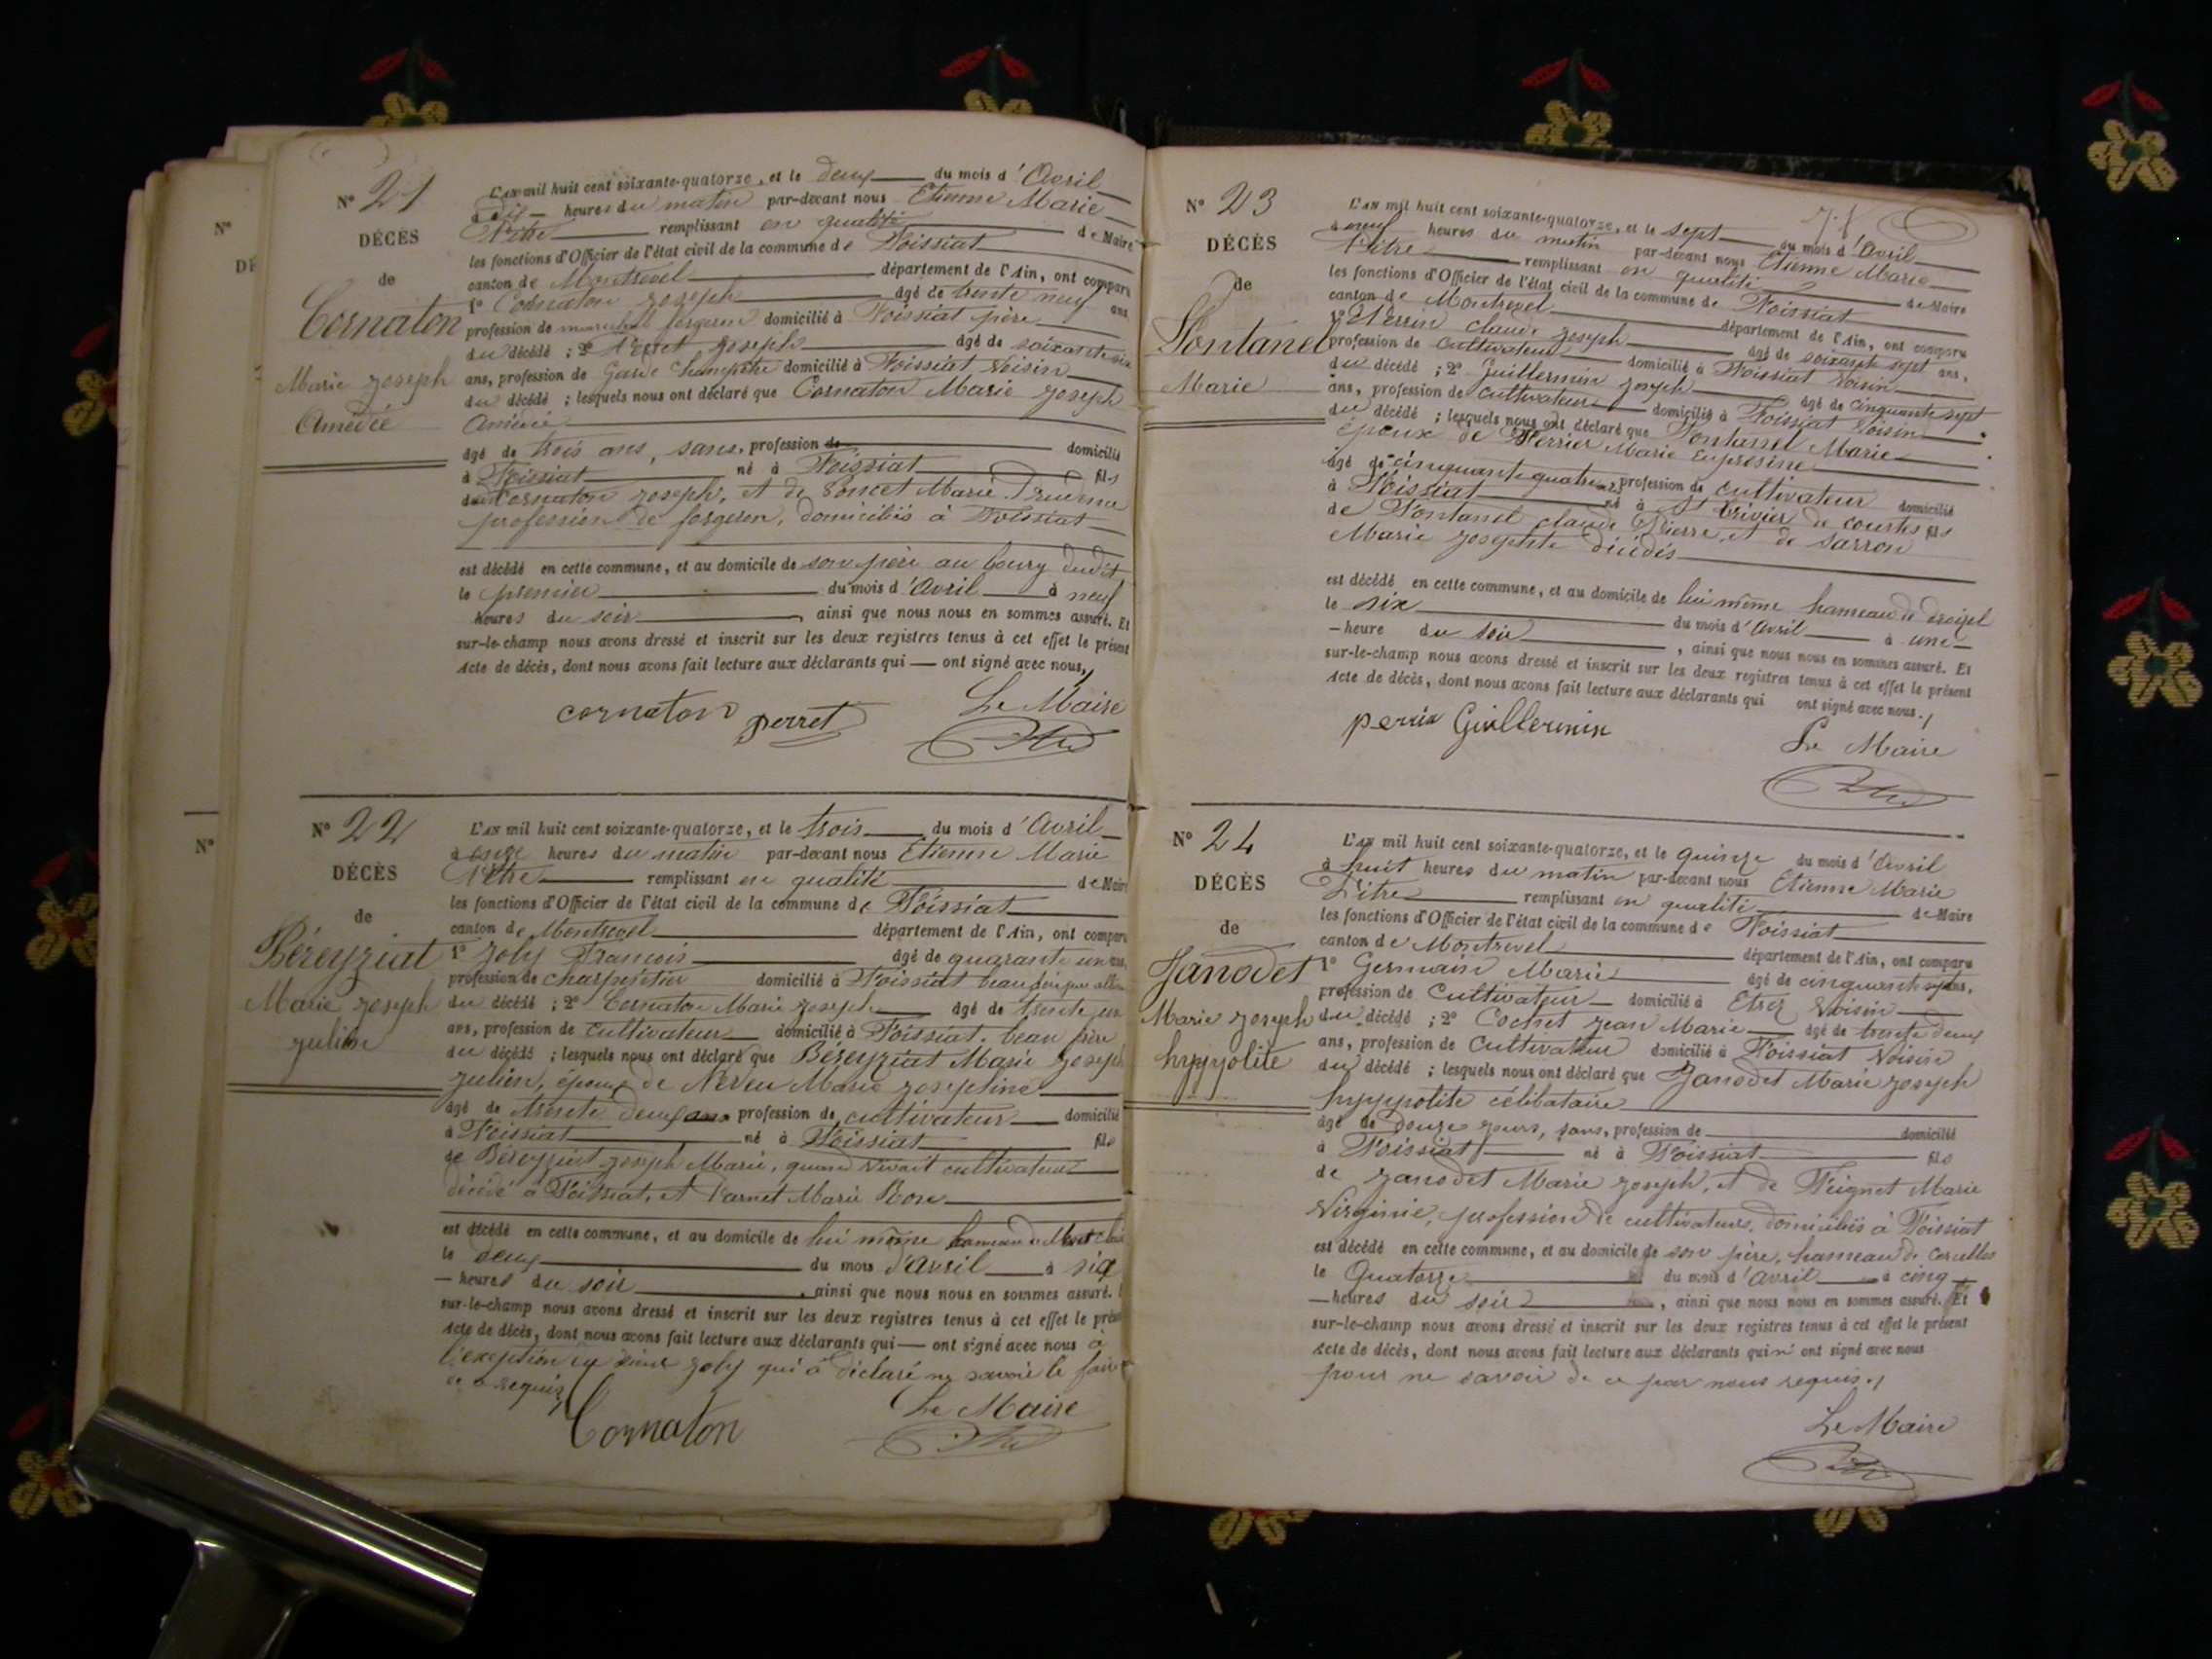 N° 21
DÉCÈS
de
Cornaton
Marie Joseph
Amédée
L'AN mil huit cent soixante-quatorze, et le deux du mois d'Avril
à dix heures du matin par-devant nous Etienne Marie
Pitre remplissant en qualité de Maire
les fonctions d'Officier de l'état civil de la commune de Foissiat
canton de Montrevel département de l'Ain, ont comparu
1° Cornaton Joseph âgé de trente neuf ans
profession de maréchal forgeron domicilié à Foissiat père
du décédé ; 2° Perret Joseph âgé de soixante six
ans, profession de Garde Champêtre domicilié à Foissiat voisin
du décédé ; lesquels nous ont déclaré que Cornaton Marie Joseph
Amédée
âgé de trois ans, sans profession de domicilié
à Foissiat né à Foissiat fils
de Cornaton Joseph, et de Poncet Marie
profession de forgeron, domiciliés à Foissiat
est décédé en cette commune, et au domicile de son père au bourg dudit
le premier du mois d'Avril à neuf
heures du soir, ainsi que nous nous en sommes assuré. Et
sur-le-champ nous avons dressé et inscrit sur les deux registres tenus à cet effet le présent
acte de décès, dont nous avons fait lecture aux déclarants qui — ont signé avec nous,
Le Maire
cornaton perret
N° 22
DÉCÈS
de
Béreyziat
Marie Joseph
Julien
L'AN mil huit cent soixante-quatorze, et le trois du mois d'Avril
à onze heures du matin par-devant nous Etienne Marie
Pitre remplissant en qualité de Maire
les fonctions d'Officier de l'état civil de la commune de Foissiat
canton de Montrevel département de l'Ain, ont comparu
1° Joly François âgé de quarante un ans,
profession de charpentier domicilié à Foissiat beau frère par
du décédé ; 2° Cornaton Marie Joseph âgé de trente un
ans, profession de cultivateur domicilié à Foissiat. beau frère
du décédé ; lesquels nous ont déclaré que Béreyziat Marie Joseph
Julien, époux de Neveu Marie Josephine
âgé de trente deux ans profession de cultivateur domicilié
à Foissiat né à Foissiat fils
de Béreyziat Joseph Marie, quand vivait cultivateur
décédé à Foissiat, et Varnet Marie Rose
est décédé en cette commune, et au domicile de lui même hameau de
le deux du mois d'avril à six
— heures du soir, ainsi que nous nous en sommes assuré.
sur-le-champ nous avons dressé et inscrit sur les deux registres tenus à cet effet le
acte de décès, dont nous avons fait lecture aux déclarants qui — ont signé avec nous à
l'exeption du sieur Joly qui à déclaré ne savoir le faire
de ce requis
Le Maire
Cornaton
N° 23
DÉCÈS
de
Fontanel
Marie
L'AN mil huit cent soixante-quatorze, et le sept du mois d'Avril
à neuf heures du matin par-devant nous Etienne Marie
Pitre remplissant en qualité de Maire
les fonctions d'Officier de l'état civil de la commune de Foissiat
canton de Montrevel département de l'Ain, ont comparu
1° Perrin claude Joseph âgé de soixante sept ans,
profession de cultivateur domicilié à Foissiat voisin
du décédé ; 2° Guillermin Joseph âgé de cinquante sept
ans, profession de cultivateur domicilié à Foissiat voisin
du décédé ; lesquels nous ont déclaré que Fontanel Marie
époux de Perrier Marie Euprosine
âgé de cinquante quatre ans profession de cultivateur domicilié
à Foissiat né à St Trivier de courtes fils
de Fontanel claude Pierre, et de Sarron
Marie Josephte décédés
est décédé en cette commune, et au domicile de lui même hameau de
le six du mois d'Avril à une
— heure du soir, ainsi que nous nous en sommes assuré. Et
sur-le-champ nous avons dressé et inscrit sur les deux registres tenus à cet effet le présent
acte de décès, dont nous avons fait lecture aux déclarants qui ont signé avec nous.
perrin Guillermin
Le Maire
N° 24
DÉCÈS
de
Janodet
Marie Joseph
hyppolite
L'AN mil huit cent soixante-quatorze, et le quinze du mois d'Avril
à huit heures du matin par-devant nous Etienne Marie
Pitre remplissant en qualité de Maire
les fonctions d'Officier de l'état civil de la commune de Foissiat
canton de Montrevel département de l'Ain, ont comparu
1° Germain Marie âgé de cinquante sept ans,
profession de Cultivateur domicilié à Etrez voisin
du décédé ; 2° Cochet Jean Marie âgé de trente deux
ans, profession de cultivateur domicilié à Foissiat voisin
du décédé ; lesquels nous ont déclaré que Janodet Marie Joseph
hyppolite célibataire
âgé de douze jours, sans, profession de domicilié
à Foissiat né à Foissiat fils
de Janodet Marie Joseph, et de Feignet Marie
Virginie, profession de cultivateurs, domiciliés à Foissiat
est décédé en cette commune, et au domicile de son père, hameau de Corcelles
le Quatorze du mois d'avril à cinq
— heures du soir, ainsi que nous nous en sommes assuré. Et
sur-le-champ nous avons dressé et inscrit sur les deux registres tenus à cet effet le présent
acte de décès, dont nous avons fait lecture aux déclarants qui n'ont signé avec nous
pour ne savoir de ce par nous requis.
Le Maire